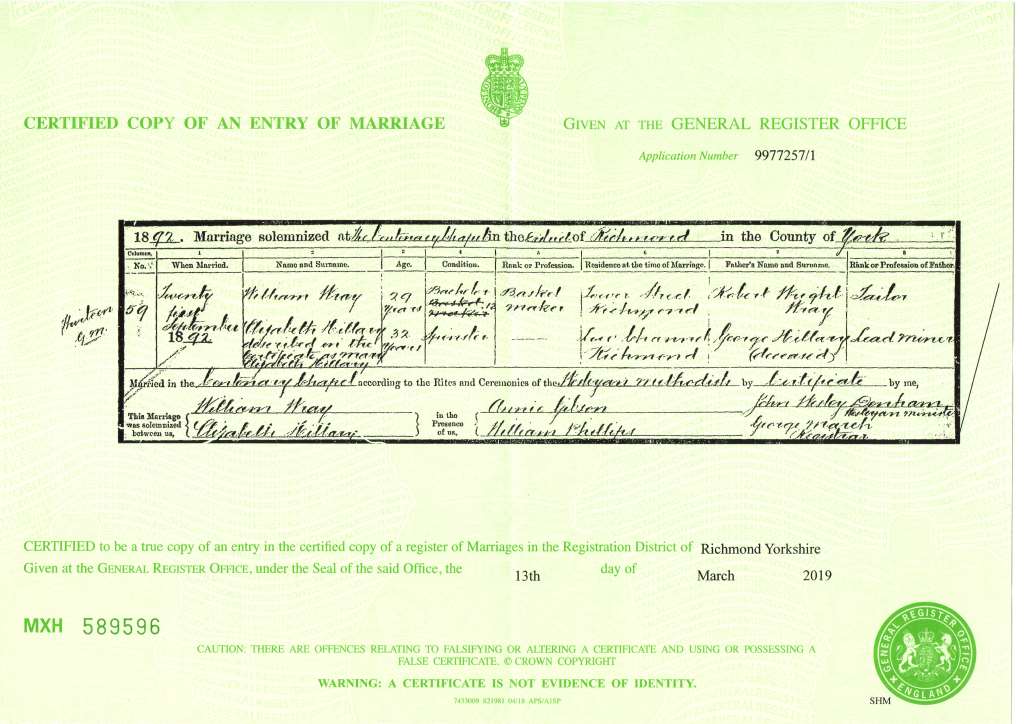 CERTIFIED COPY OF AN ENTRY OF MARRIAGE
GIVEN AT THE GENERAL REGISTER OFFICE
Application Number 9977257/1
1892. Marriage solemnized at the Centenary Chapel in the District of Richmond in the County of York
Columns. 1 2 3 4 5 6 7 8
No. When Married. Name and Surname. Age. Condition. Rank or Profession. Residence at the time of Marriage. Father's Name and Surname. Rank or Profession of Father.
59 Twenty William Wray 29 Bachelor Basket Tower Street Robert Wright Tailor
first years maker Richmond Wray
September Elizabeth Hillary 32 Spinster George Hillary Lead miner
1892 described in the years Richmond (deceased)
Certificate as Mary
Elizabeth Hillary
G.M.
Married in the Centenary Chapel according to the Rites and Ceremonies of the Wesleyan Methodists by Certificate by me,
This Marriage was solemnized between us,
William Wray
Elizabeth Hillary
in the Presence of us,
Annie Gibson
William Phillips
John Wesley
Wesleyan Minister
George March
Registrar
CERTIFIED to be a true copy of an entry in the certified copy of a register of Marriages in the Registration District of Richmond Yorkshire
Given at the GENERAL REGISTER OFFICE, under the Seal of the said Office, the 13th day of March 2019
MXH 589596
CAUTION: THERE ARE OFFENCES RELATING TO FALSIFYING OR ALTERING A CERTIFICATE AND USING OR POSSESSING A
FALSE CERTIFICATE. © CROWN COPYRIGHT
WARNING: A CERTIFICATE IS NOT EVIDENCE OF IDENTITY.
7433008 821981 04/18 APS/A1SP
GENERAL REGISTER OFFICE
ENGLAND
SHM